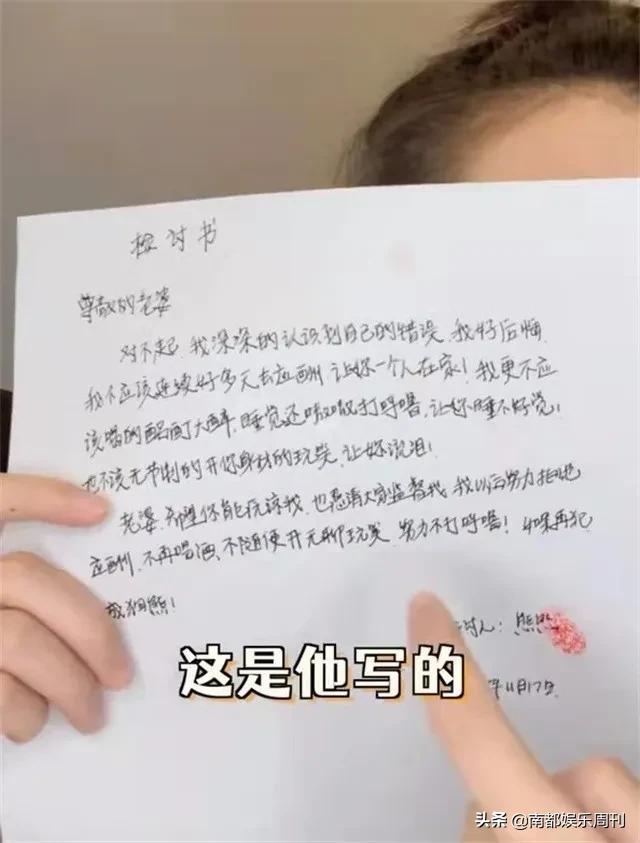 检讨书
尊敬的老婆
对不起,我深深的认识到自己的错误,我好后悔
我不应该连续好多天去应酬,让你一个人在家!我更不应
该喝的酩酊大醉,睡觉还嗷嗷打呼噜,让你睡不好觉!
也不该无节制的开你身材的玩笑,让你流泪!
老婆,希望你能原谅我,也恳请大家监督我,我以后努力拒绝
应酬,不再喝酒,不随便开无聊玩笑,努力不打呼噜!如果再犯
我狗熊!
讨人:熊
年11月17日
这是他写的
头条 @南都娱乐周刊